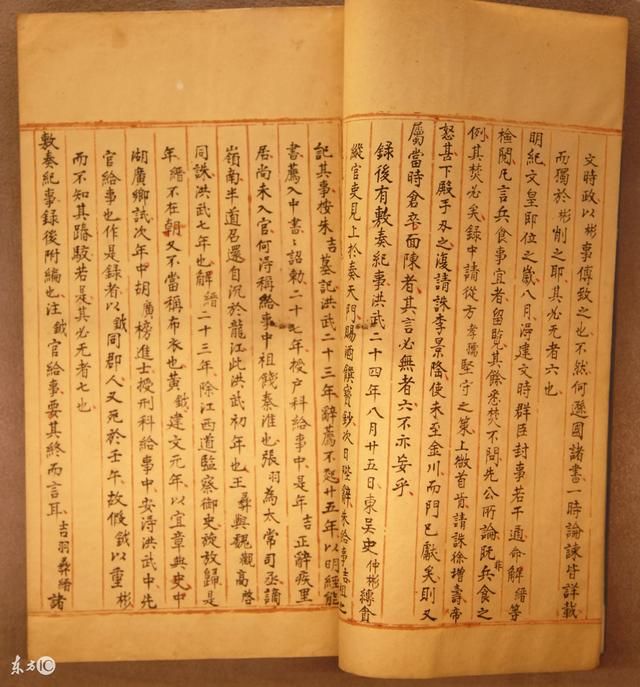 文時政以彬事傅致之也不然何遜國諸書一時論諫皆詳載
而獨於彬削之耶其必无者六也
明紀文皇即位之歲八月淂建文時群臣封事若干通命解縉等
檢閱凡言兵食事宜者留覧其餘悉焚不問先公所論既非兵食之
例其焚必矣録中請從方孝孺堅守之策上微首肯請誅徐增壽帝
怒甚下殿手刃之復請誅李景隆使未至金川而門已獻矣則又
屬當時倉卒面陳者其言必無者六不亦妄乎
録後有敷奏紀事洪武二十四年八月廿五日東吴史仲彬縛貪
縱官吏見上於奏天門賜酒饌寳鈔次日陛辭朱給事吉祖之
記其事按朱吉墓記洪武二十三年辭薦不起廿五年以明經能
書薦入中書〻詔勅二十七年授户科給事中是年吉正辭疾里
居尚未入官何淂稱給事中祖餞秦淮也張羽為太常司丞謫
嶺南半道召還自沉於龍江此洪武初年也王彝與魏觀高啓
同誅洪武七年也解縉二十三年除江西道監察御史旋放歸是
年縉不在朝又不當稱布衣也黄鉞建文元年以宜章典史中
湖廣鄉試次年中胡廣榜進士授刑科給事中安淂洪武中先
官給事也作是録者以鉞同郡人又死於壬午故假鉞以重彬
而不知其踳駁若是其必无者七也
敷奏紀事録後附編也注鉞官給事要其終而言耳吉羽彝縉諸
东方IC